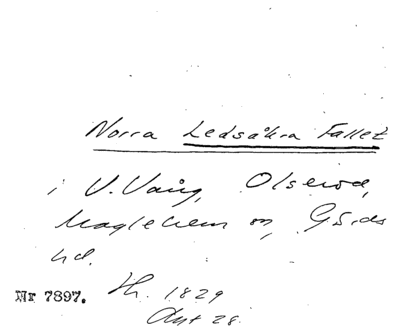 Norra Ledsåkra Fallet
i V. Vång, Olserød,
Maglehem sn, Gärds
hd.
Nr 7897. Th. 1829
Akt 28.